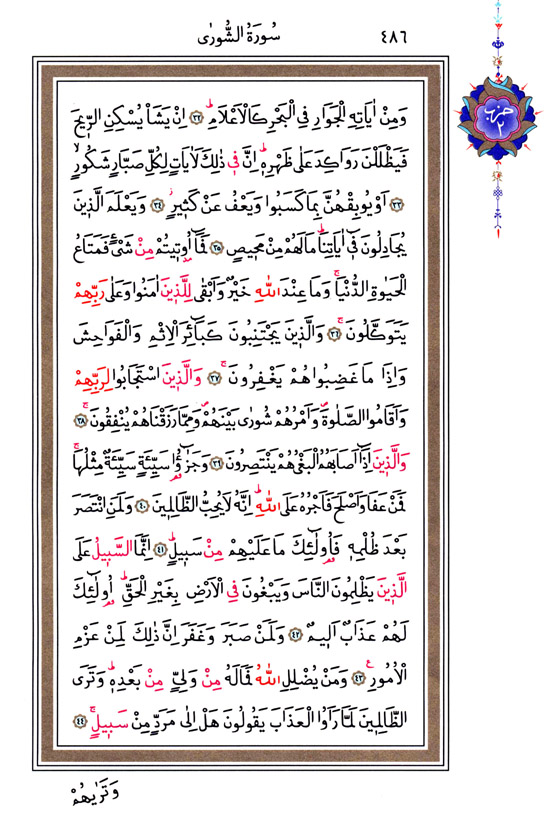 ٤٨٦ سُورَةُ الشُّورٰى
حزب ٢
وَمِنْ اٰيَاتِهِ الْجَوَارِ فِى الْبَحْرِ كَالْاَعْلَامِۜ ﴿٣٢﴾ اِنْ يَشَأْ يُسْكِنِ الرّ۪يحَ
فَيَظْلَلْنَ رَوَاكِدَ عَلٰى ظَهْرِه۪ۜ اِنَّ ف۪ى ذٰلِكَ لَاٰيَاتٍ لِكُلِّ صَبَّارٍ شَكُورٍۙ
﴿٣٣﴾ اَوْ يُوبِقْهُنَّ بِمَا كَسَبُوا وَيَعْفُ عَنْ كَث۪يرٍۘ ﴿٣٤﴾ وَيَعْلَمَ الَّذ۪ينَ
يُجَادِلُونَ ف۪ٓى اٰيَاتِنَاۜ مَا لَهُمْ مِنْ مَح۪يصٍ ﴿٣٥﴾ فَمَٓا اُو۫ت۪يتُمْ مِنْ شَىْءٍ فَمَتَاعُ
الْحَيٰوةِ الدُّنْيَاۚ وَمَا عِنْدَ اللّٰهِ خَيْرٌ وَاَبْقٰى لِلَّذ۪ينَ اٰمَنُوا وَعَلٰى رَبِّهِمْ
يَتَوَكَّلُونَۚ ﴿٣٦﴾ وَالَّذ۪ينَ يَجْتَنِبُونَ كَبَٓائِرَ الْاِثْمِ وَالْفَوَاحِشَ
وَاِذَا مَا غَضِبُوا هُمْ يَغْفِرُونَۚ ﴿٣٧﴾ وَالَّذ۪ينَ اسْتَجَابُوا لِرَبِّهِمْ
وَاَقَامُوا الصَّلٰوةَۖ وَاَمْرُهُمْ شُورٰى بَيْنَهُمْۖ وَمِمَّا رَزَقْنَاهُمْ يُنْفِقُونَۚ ﴿٣٨﴾
وَالَّذ۪ينَ اِذَٓا اَصَابَهُمُ الْبَغْىُ هُمْ يَنْتَصِرُونَ ﴿٣٩﴾ وَجَزٰٓؤُ۬ا سَيِّئَةٍ سَيِّئَةٌ مِثْلُهَاۚ
فَمَنْ عَفَا وَاَصْلَحَ فَاَجْرُهُ عَلَى اللّٰهِۜ اِنَّهُ لَا يُحِبُّ الظَّالِم۪ينَ ﴿٤٠﴾ وَلَمَنِ انْتَصَرَ
بَعْدَ ظُلْمِه۪ فَاُو۬لٰٓئِكَ مَا عَلَيْهِمْ مِنْ سَب۪يلٍۜ ﴿٤١﴾ اِنَّمَا السَّب۪يلُ عَلَى
الَّذ۪ينَ يَظْلِمُونَ النَّاسَ وَيَبْغُونَ فِى الْاَرْضِ بِغَيْرِ الْحَقِّۜ اُو۬لٰٓئِكَ
لَهُمْ عَذَابٌ اَل۪يمٌ ﴿٤٢﴾ وَلَمَنْ صَبَرَ وَغَفَرَ اِنَّ ذٰلِكَ لَمِنْ عَزْمِ
الْاُمُورِ۟ ﴿٤٣﴾ وَمَنْ يُضْلِلِ اللّٰهُ فَمَا لَهُ مِنْ وَلِىٍّ مِنْ بَعْدِه۪ۜ وَتَرَى
الظَّالِم۪ينَ لَمَّا رَاَوُا الْعَذَابَ يَقُولُونَ هَلْ اِلٰى مَرَدٍّ مِنْ سَب۪يلٍۚ ﴿٤٤﴾
وَتَرٰيهُمْ